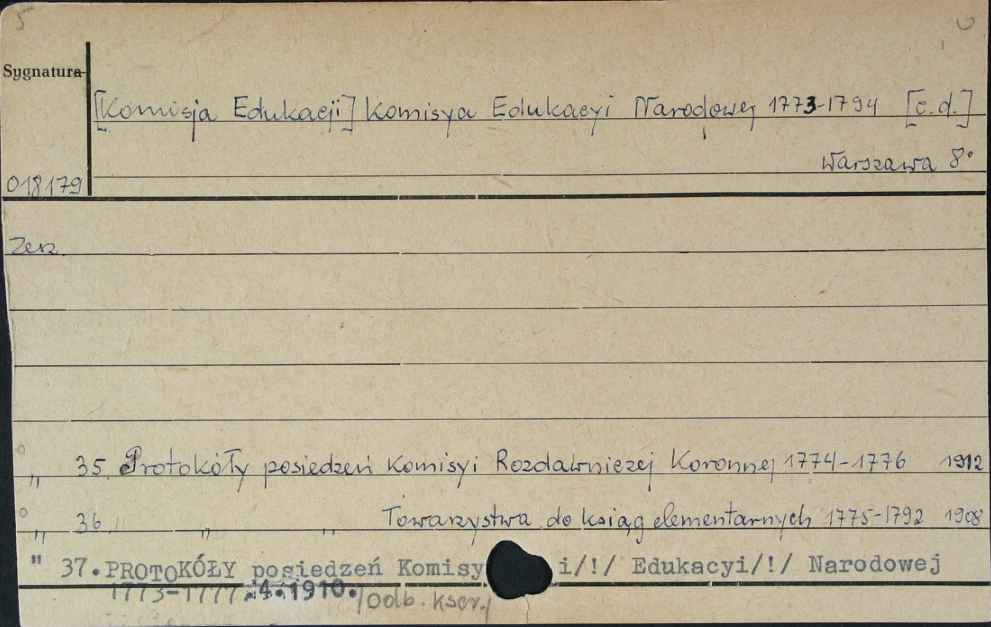 5
Sygnatura
[Komisja Edukacji] Komisya Edukacyi Narodowej 1773-1794 [c.d.]
Warszawa 8°
018179
Zesz.
" 35. Protokóły posiedzeń Komisyi Rozdawniczej Koronnej 1774-1776 1912
" 36 " " " Towarzystwa do ksiąg elementarnych 1775-1792 1908
" 37. PROTOKÓŁY posiedzeń Komisy i/!/ Edukacyi/!/ Narodowej
1773-1777. 1910. /Odb. kser./